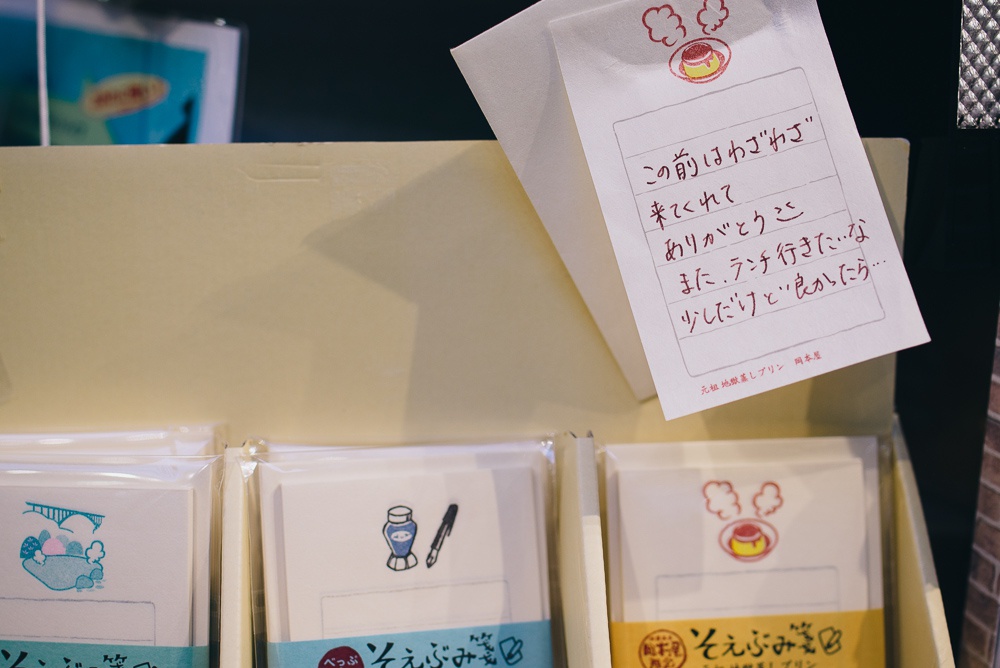 この前はわざわざ
来てくれて
ありがとう
また、ランチ行きたいな
少しだけど良かったら…
元祖 地獄蒸しプリン 岡本屋
そえぶみ箋
べっぷ
そえぶみ箋
岡本屋
そえぶみ箋
元祖 地獄蒸しプリン